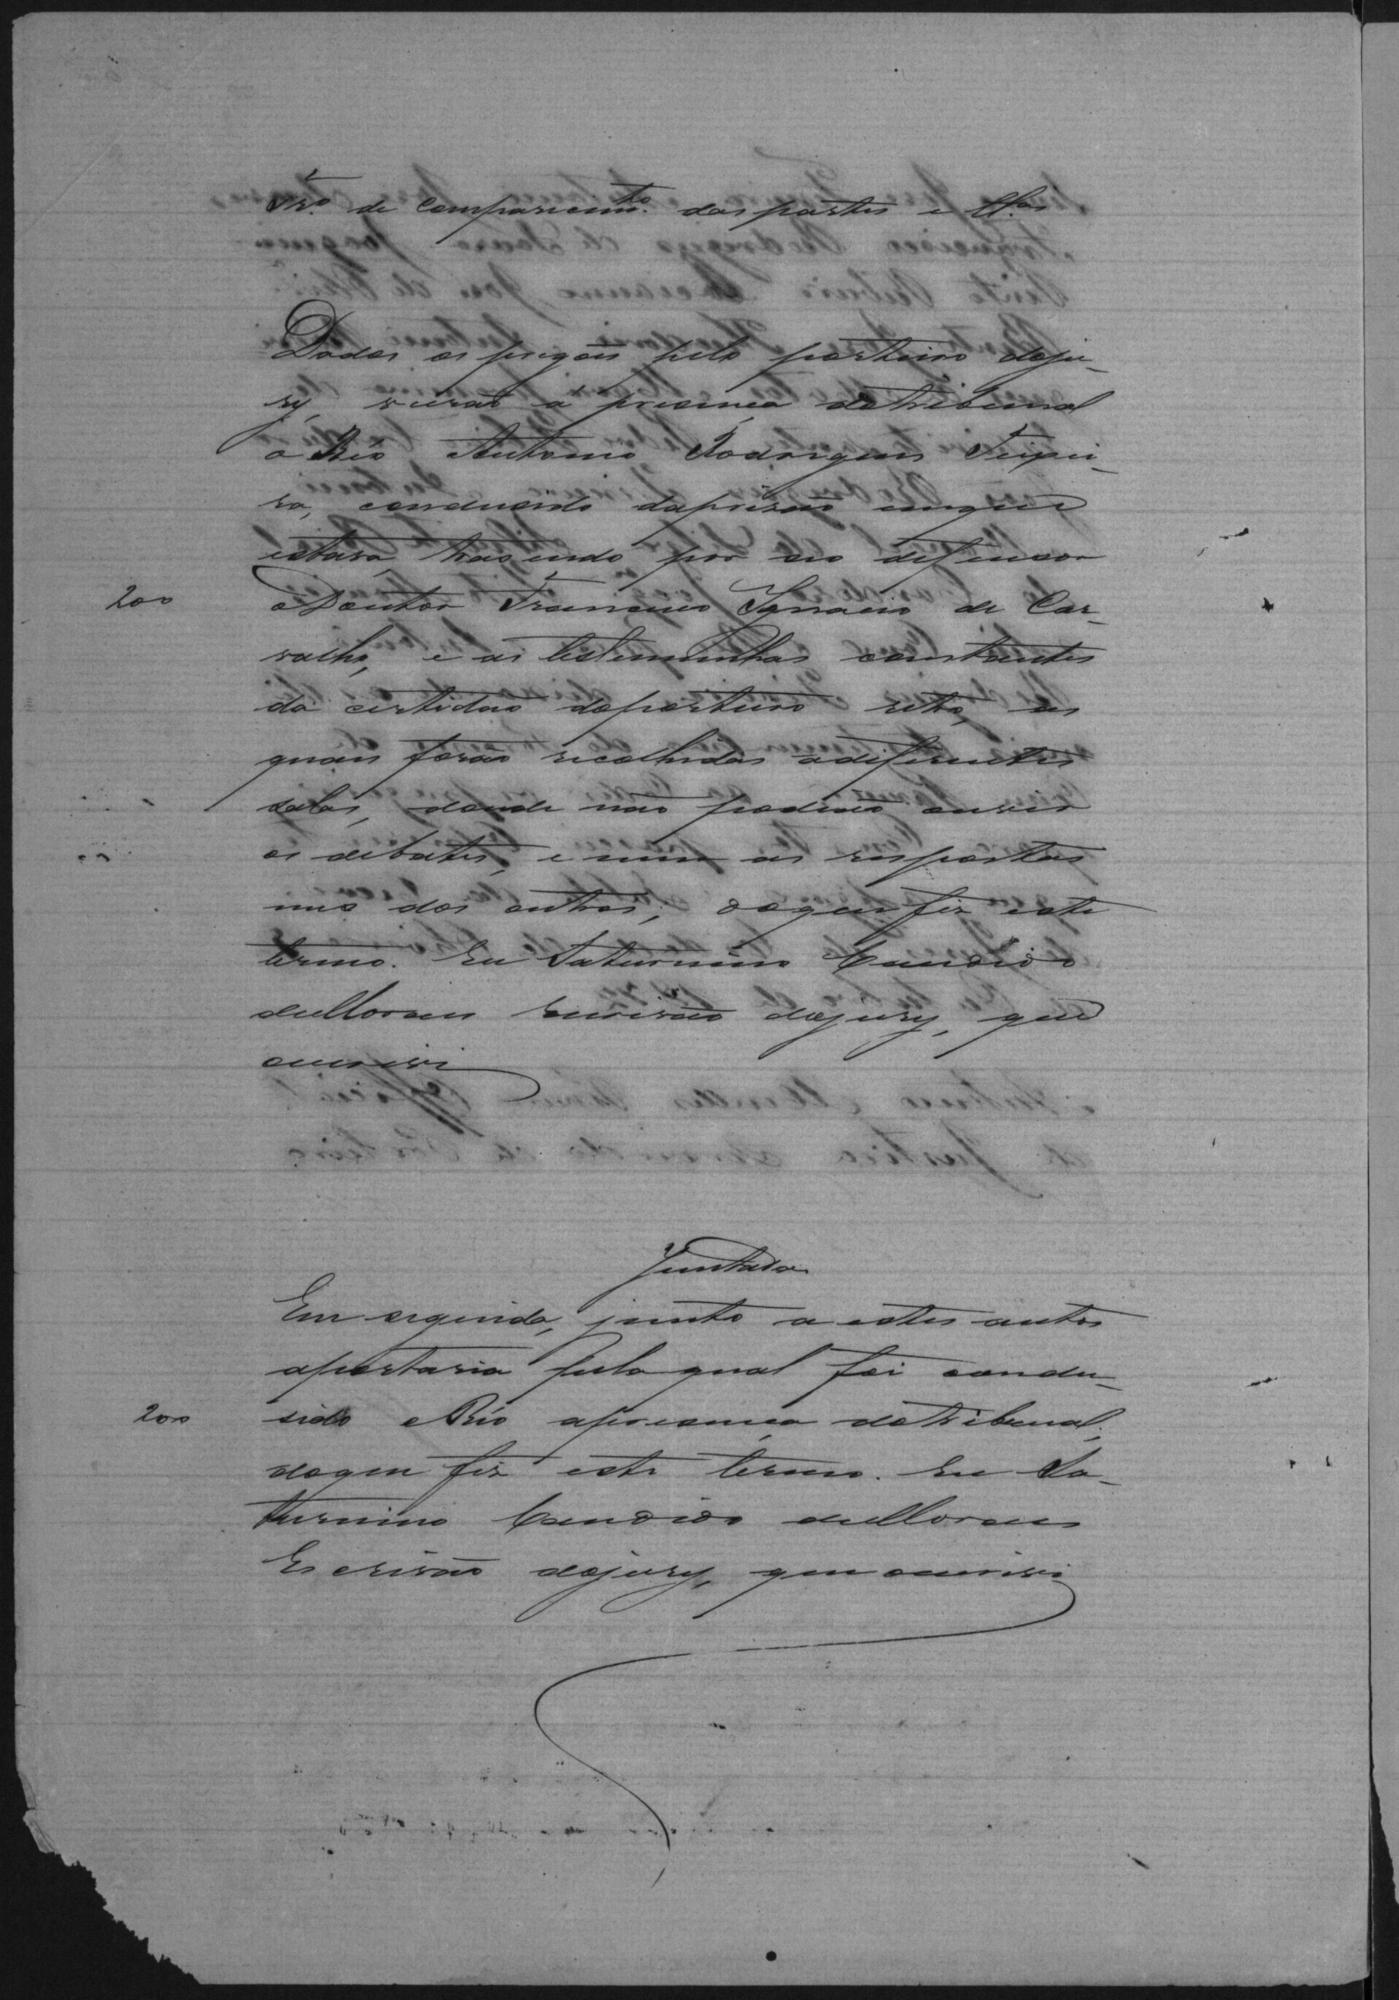 Tr.º de comparecim.to das partes e tt.as
Dados os pregões pelo porteiro doju-
ry, vierão á presença dotribunal
o Réo Antonio Rodrigues Teixei-
ra, condusido daprisão emque
estava trasendo por seo defensor
200 o Doutor Francisco Ignacio de Car-
valho, e as testemunhas constantes
da certidão doporteiro retro, as
quais forão recolhidas adifferentes
salas, donde não podião ouvir
os debates, e nem as respostas
uns dos outros; doque fiz este
termo. Eu Saturnino Candido
deMoraes Escrivão dojury, que
escrevi
Juntada
Em seguida, junto a estes autos
aportaria pela qual foi condu-
200 sido o Réo apresença dotribunal;
doque fiz este termo. Eu Sa-
turnino Candido deMoraes
Escrivão dojury, que escrevi